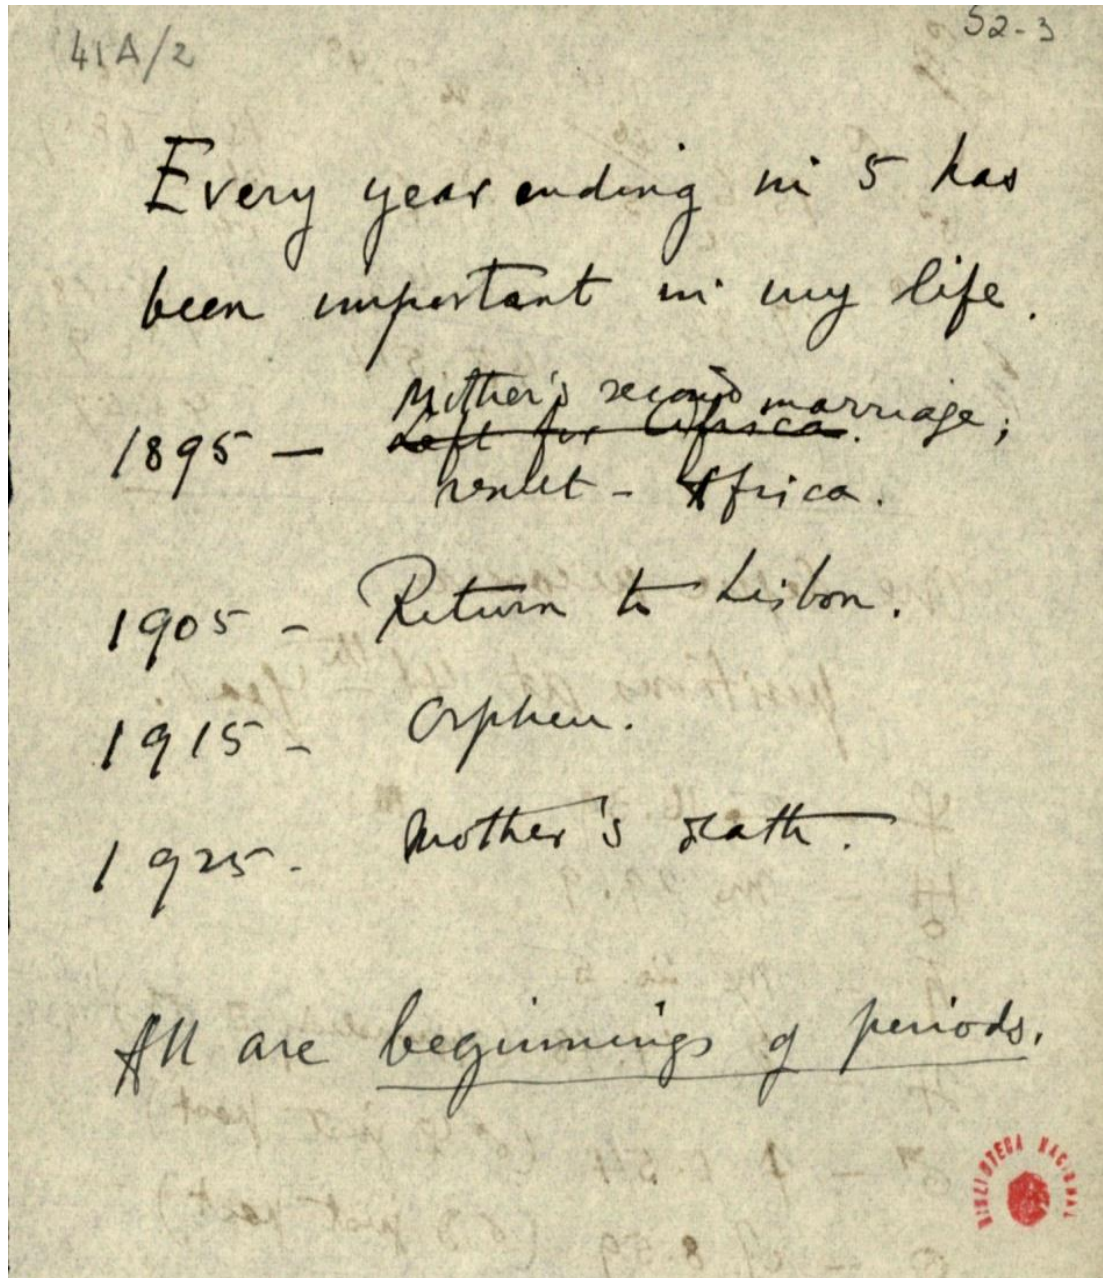 41A/2
52-3
Every year ending in 5 has
been important in my life.
Mother's second marriage;
1895 — Left for Africa.
result - Africa.
1905 - Return to Lisbon.
1915 - Orpheu.
1925 - Mother's death.
All are beginnings of periods.
BIBLIOTECA NACIONAL